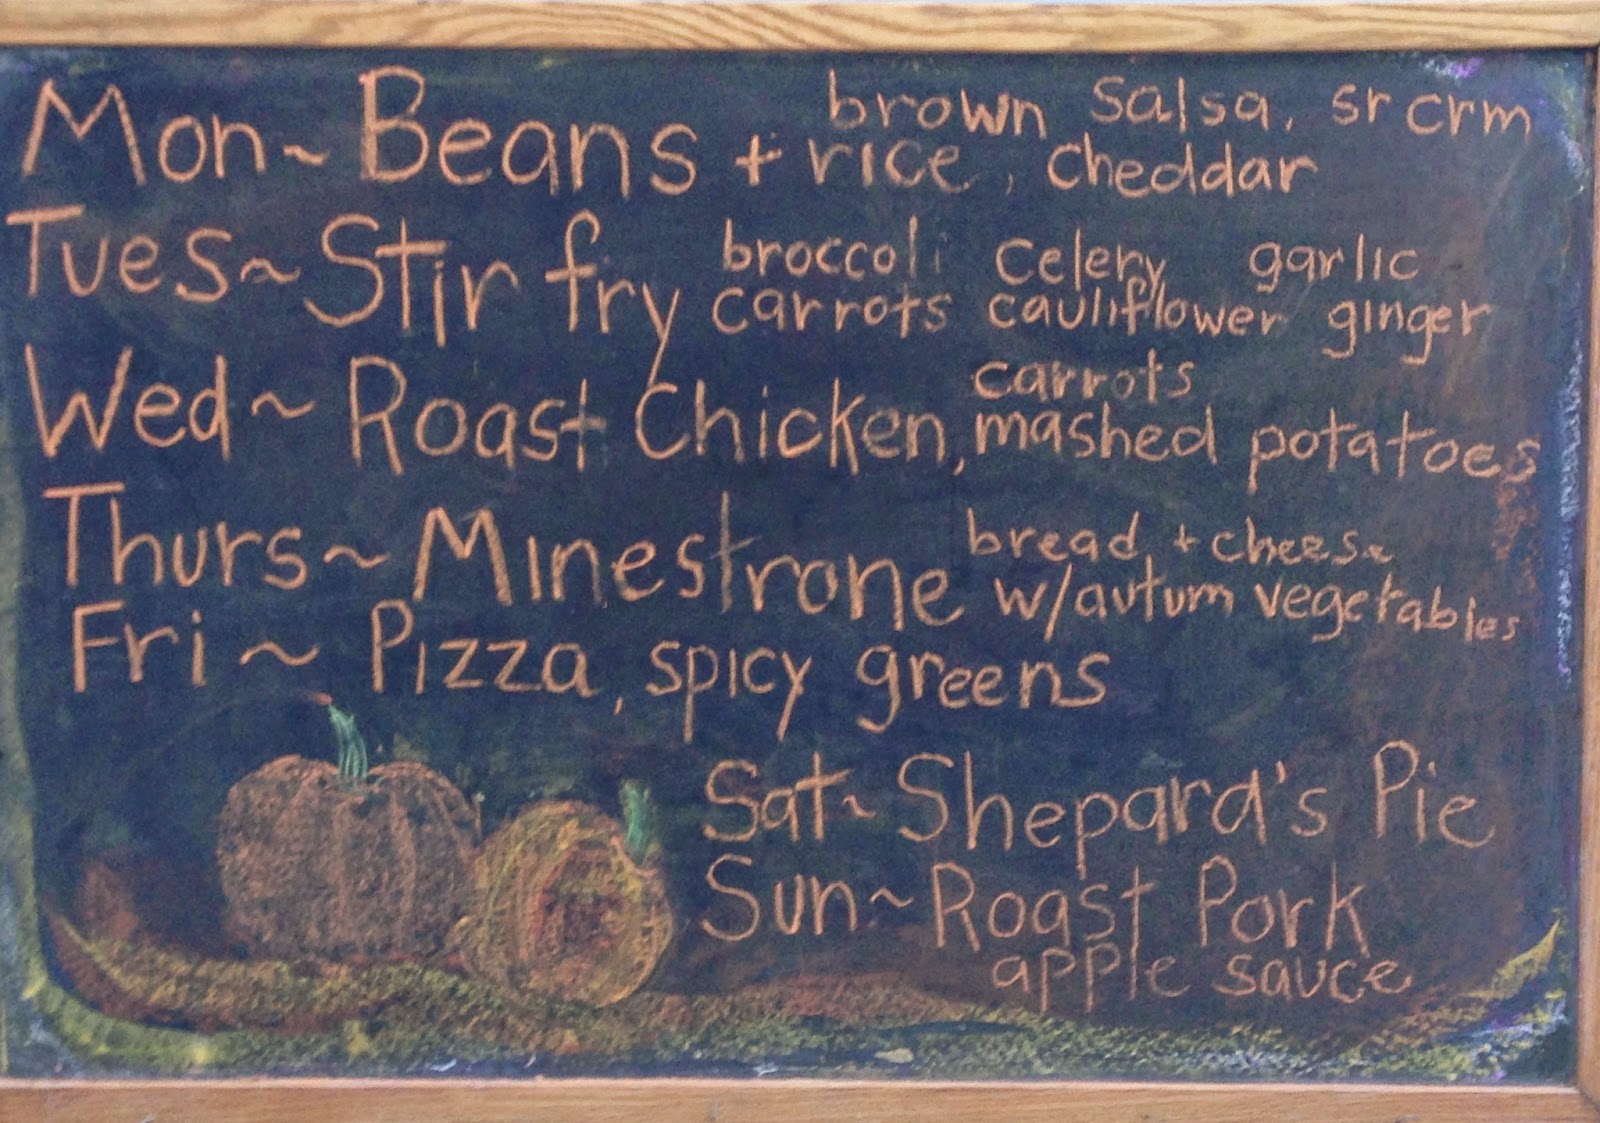 Mon~ Beans + brown rice, salsa, sr crm cheddar
Tues~ Stir fry broccoli celery garlic
carrots cauliflower ginger
Wed~ Roast Chicken, carrots
mashed potatoes
Thurs~ Minestrone bread, + cheese
w/autum vegetables
Fri~ Pizza, spicy greens
Sat~ Shepard's Pie
Sun~ Roast Pork
apple sauce